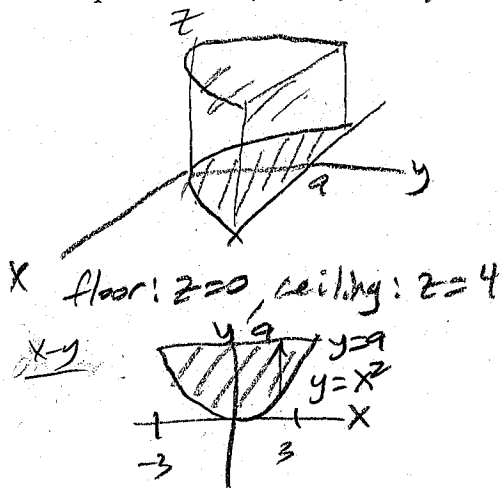 z
y
9
x
floor: z=0, ceiling: z=4
x-y
y 9 y=9
y=x²
x
-3 3